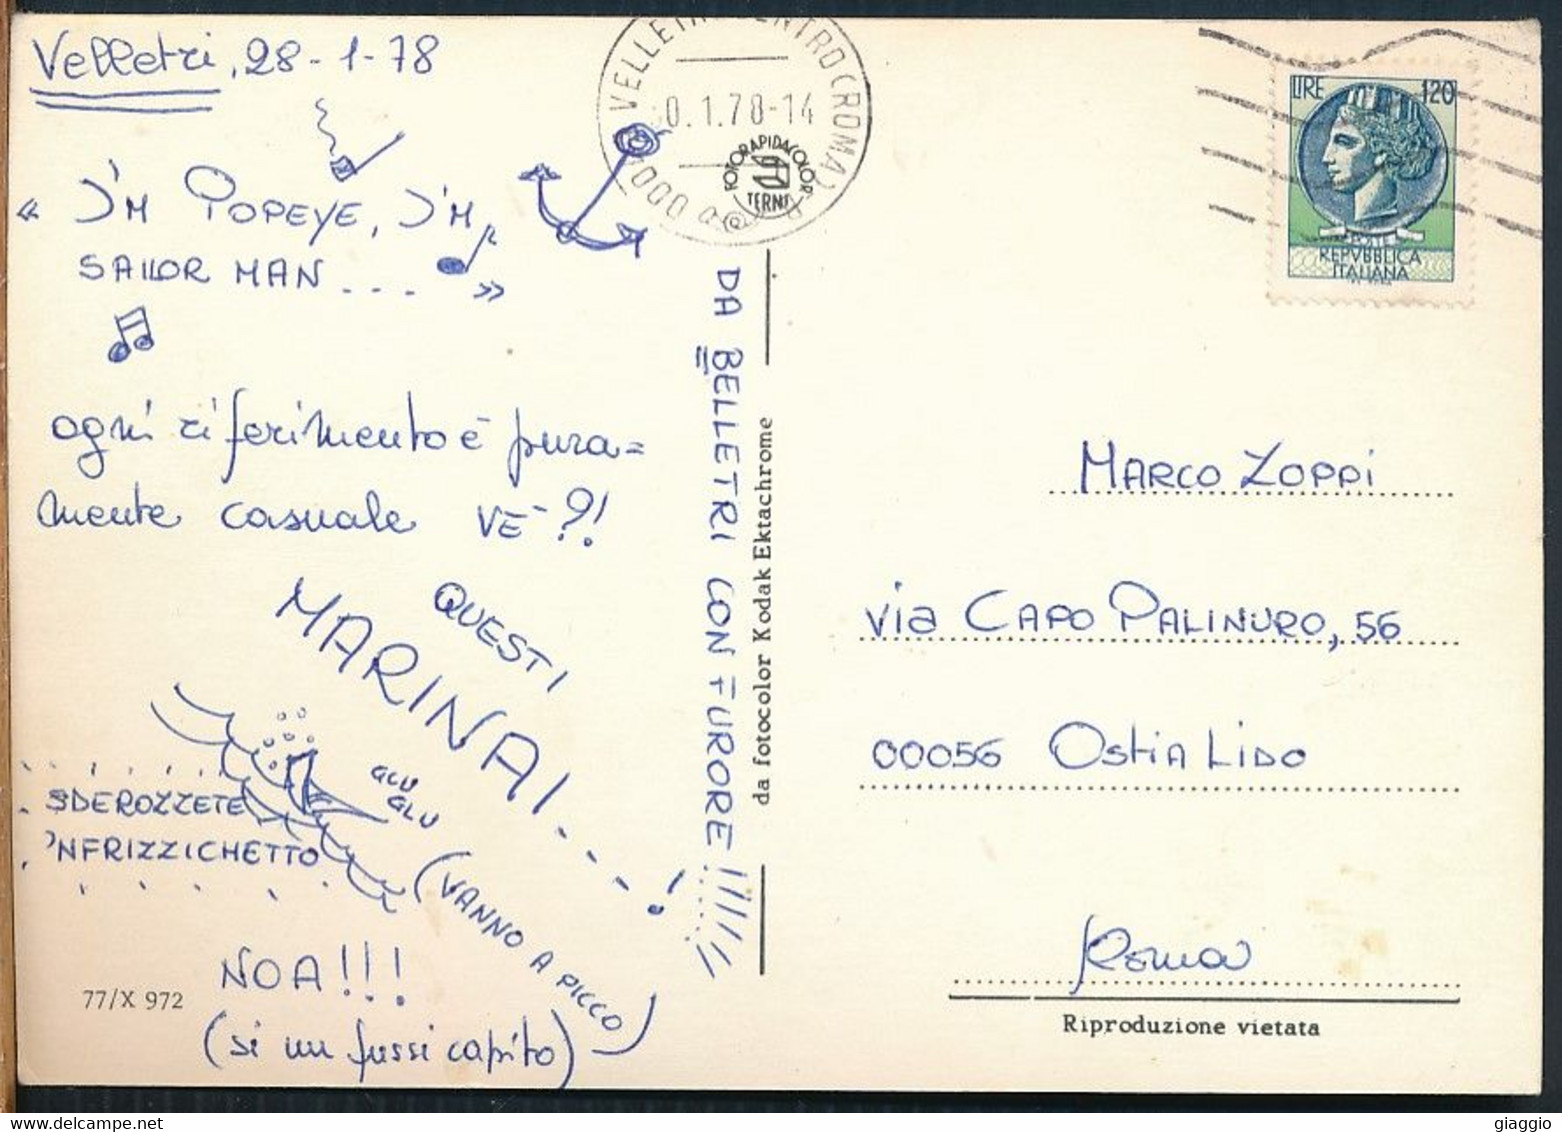 Velletri, 28-1-78
« I'M POPEYE, I'M
SAILOR MAN.... »
ogni riferimento è pura=
mente casuale VE'?!
QUESTI
MARINAI....!
GLU
GLU
SDEROZZETE
'NFRIZZICHETTO
(VANNO A PICCO)
NOA!!!
(si un fussi capito)
77/X 972
DA BELLETRI CON FURORE!!!!!
da fotocolor Kodak Ektachrome
FOTORAPIDACOLOR
TERNI
0.1.78-14
LIRE 120
POSTE
REPVBBLICA
ITALIANA
MARCO ZOPPI
via CAPO PALINURO, 56
00056 Ostia Lido
Roma
Riproduzione vietata